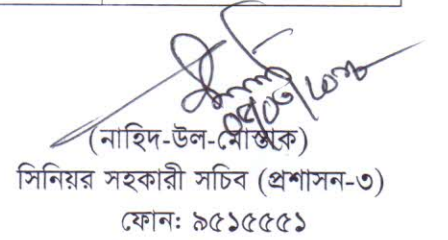 (নাহিদ-উল-মোস্তাক)
সিনিয়র সহকারী সচিব (প্রশাসন-৩)
ফোনঃ ৯৫১৫৫৫১